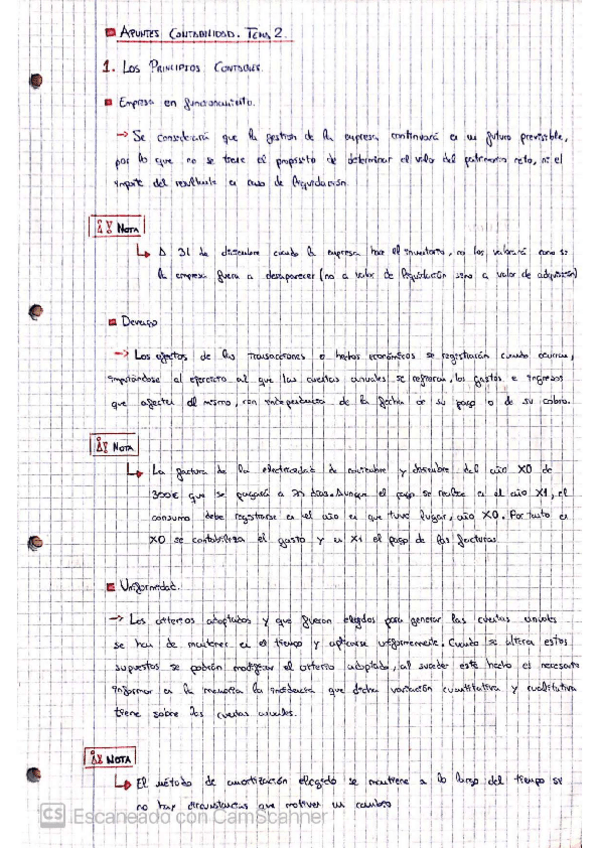 APUNTES CONTABILIDAD. TEMA 2.
1. LOS PRINCIPIOS CONTABLES.
Empresa en funcionamiento.
→ Se considerará que la gestión de la empresa continuará en un futuro previsible,
por lo que no se tiene el propósito de determinar el valor del patrimonio neto, ni el
importe del resultante en caso de liquidación.
NOTA
↳ A 31 de diciembre cuando la empresa hace el inventario, no los valorará como si
la empresa fuera a desaparecer (no a valor de liquidación sino a valor de adquisición)
Devengo
→ Los efectos de las transacciones o hechos económicos se registrarán cuando ocurran,
imputándose al ejercicio al que las cuentas anuales se refieran, los gastos e ingresos
que afecten al mismo, con independencia de la fecha de su pago o de su cobro.
NOTA
↳ La factura de la electricidad de noviembre y diciembre del año X0 de
300€ que se pagará a días. Aunque el pago se realice en el año X1, el
consumo debe registrarse en el año en que tuvo lugar, año X0. Por tanto en
X0 se contabiliza el gasto y en X1 el pago de las facturas.
Uniformidad.
→ Los criterios adoptados y que fueron elegidos para generar las cuentas anuales
se han de mantener en el tiempo y aplicarse uniformemente. Cuando se altera estos
supuestos se podrán modificar el criterio adoptado, al suceder este hecho es necesario
informar en la memoria la incidencia que dicha variación cuantitativa y cualitativa
tiene sobre las cuentas anuales.
NOTA
↳ El método de amortización elegido se mantiene a lo largo del tiempo si
no hay circunstancias que motiven un cambio
CS Escaneado con CamScanner